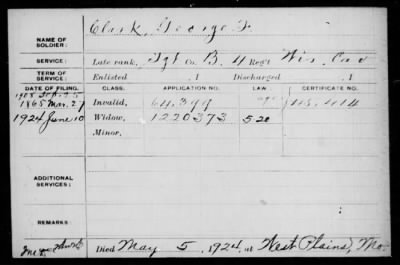 NAME OF SOLDIER: Clark, George F.
SERVICE: Late rank, Sgt Co. B, 4 Reg't Wis. Cav
TERM OF SERVICE: Enlisted , 1 Discharged , 1
DATE OF FILING. CLASS. APPLICATION NO. LAW. CERTIFICATE NO.
1865 Mar. 27 Invalid, 64.399
1924 June 10 Widow, 1220373 520
Minor,
ADDITIONAL SERVICES:
REMARKS:
Died May 5, 1924, at West Plains, Mo.